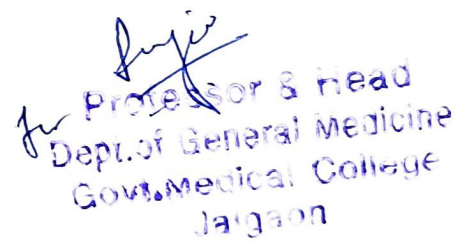 for Professor & Head
Dept.of General Medicine
Govt.Medical College
Jalgaon